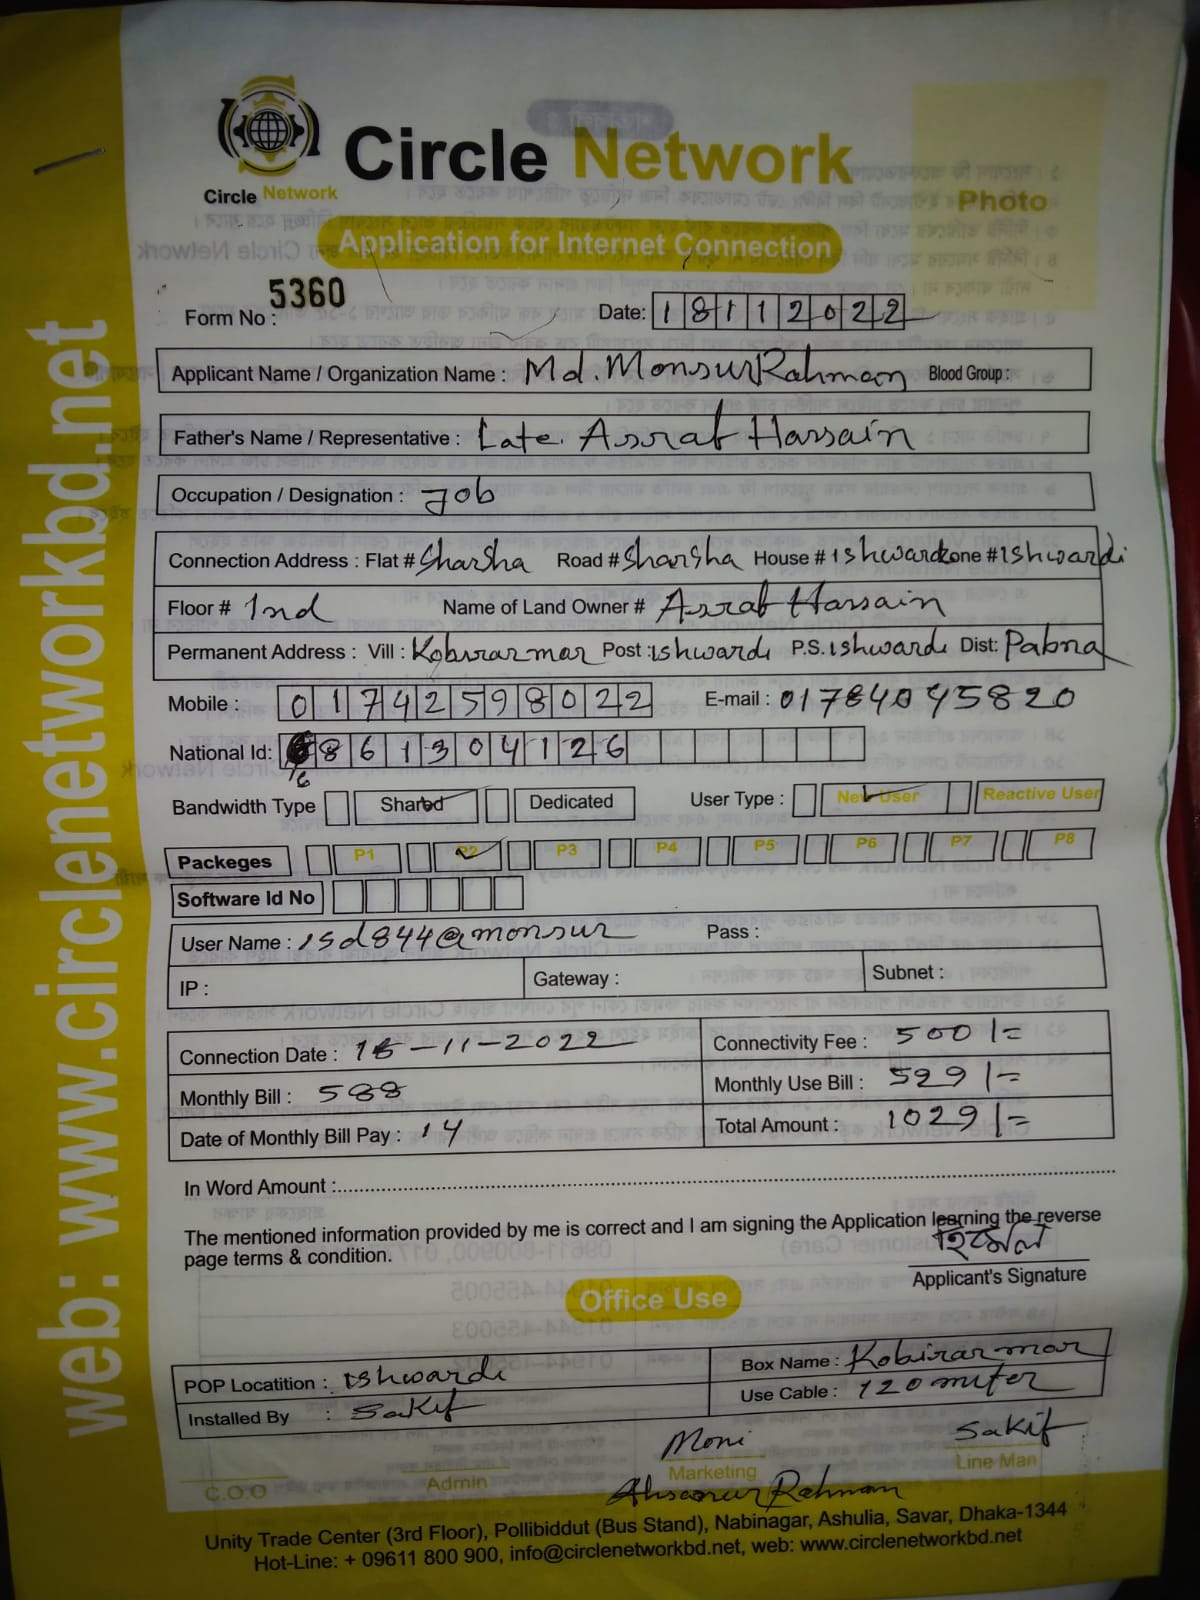 web: www.circlenetworkbd.net
Circle Network
Circle Network
Photo
Application for Internet Connection
Form No : 5360
Date: 18112022
Applicant Name / Organization Name : Md. Monsur Rahman Blood Group :
Father's Name / Representative : Late. Asrab Hassain
Occupation / Designation : Job
Connection Address : Flat # Sharsha Road # Sharsha House # Ishwardi Zone # Ishwardi
Floor # 1nd Name of Land Owner # Asrab Hassain
Permanent Address : Vill : Kobirarmar Post : ishwardi P.S. ishwardi Dist: Pabna
Mobile : 01742598022 E-mail : 01784045820
National Id: 861304126
6
Bandwidth Type Shared Dedicated User Type : New User Reactive User
Packeges P1 P2 P3 P4 P5 P6 P7 P8
Software Id No
User Name : isd844@monsur Pass :
IP : Gateway : Subnet :
Connection Date : 15-11-2022 Connectivity Fee : 500/=
Monthly Bill : 588 Monthly Use Bill : 529/=
Date of Monthly Bill Pay : 14 Total Amount : 1029/=
In Word Amount :
The mentioned information provided by me is correct and I am signing the Application learning the reverse
page terms & condition.
Applicant's Signature
Office Use
POP Locatition : ishwardi Box Name : Kobirarmar
Installed By : Sakif Use Cable : 120 miter
Moni Sakif
C.O.O Admin Marketing Line Man
Ahsanur Rahman
Unity Trade Center (3rd Floor), Pollibiddut (Bus Stand), Nabinagar, Ashulia, Savar, Dhaka-1344
Hot-Line: + 09611 800 900, info@circlenetworkbd.net, web: www.circlenetworkbd.net